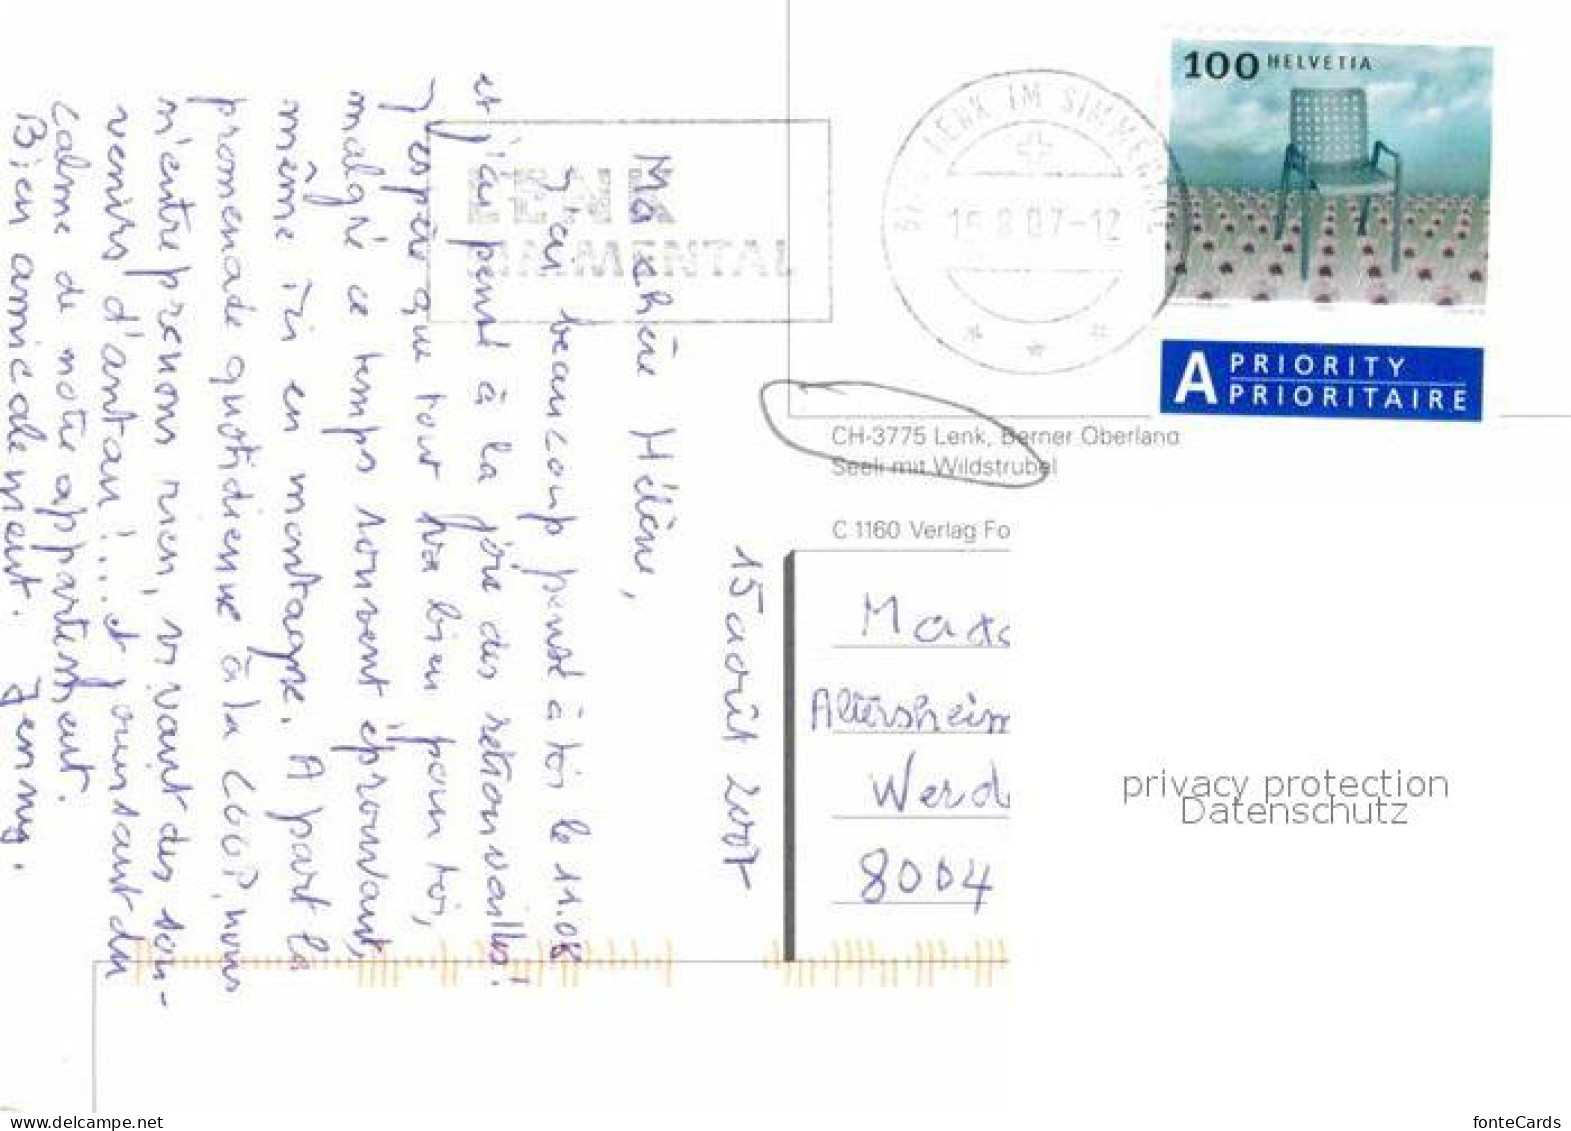 15 août 2007
Ma chère Hélène,
J'ai beaucoup pensé à toi le 11.08
et j'ai pensé à la joie des retrouvailles!
J'espère que tout va bien pour toi,
malgré ce temps souvent éprouvant,
même ici en montagne. A part la
promenade quotidienne à la COOP, nous
n'entreprenons rien, vivant des sou-
venirs d'antan!... et jouissant du
calme de notre appartement.
Bien amicalement. Jenny.
LENK
SIMMENTAL
3775 LENK IM SIMMENTAL
15.8.07-12
100 HELVETIA
A PRIORITY
PRIORITAIRE
CH-3775 Lenk, Berner Oberland
Seeli mit Wildstrubel
C 1160 Verlag Fo
Mada
Altersheim
Werd
8004
privacy protection
Datenschutz
www.delcampe.net
fonteCards